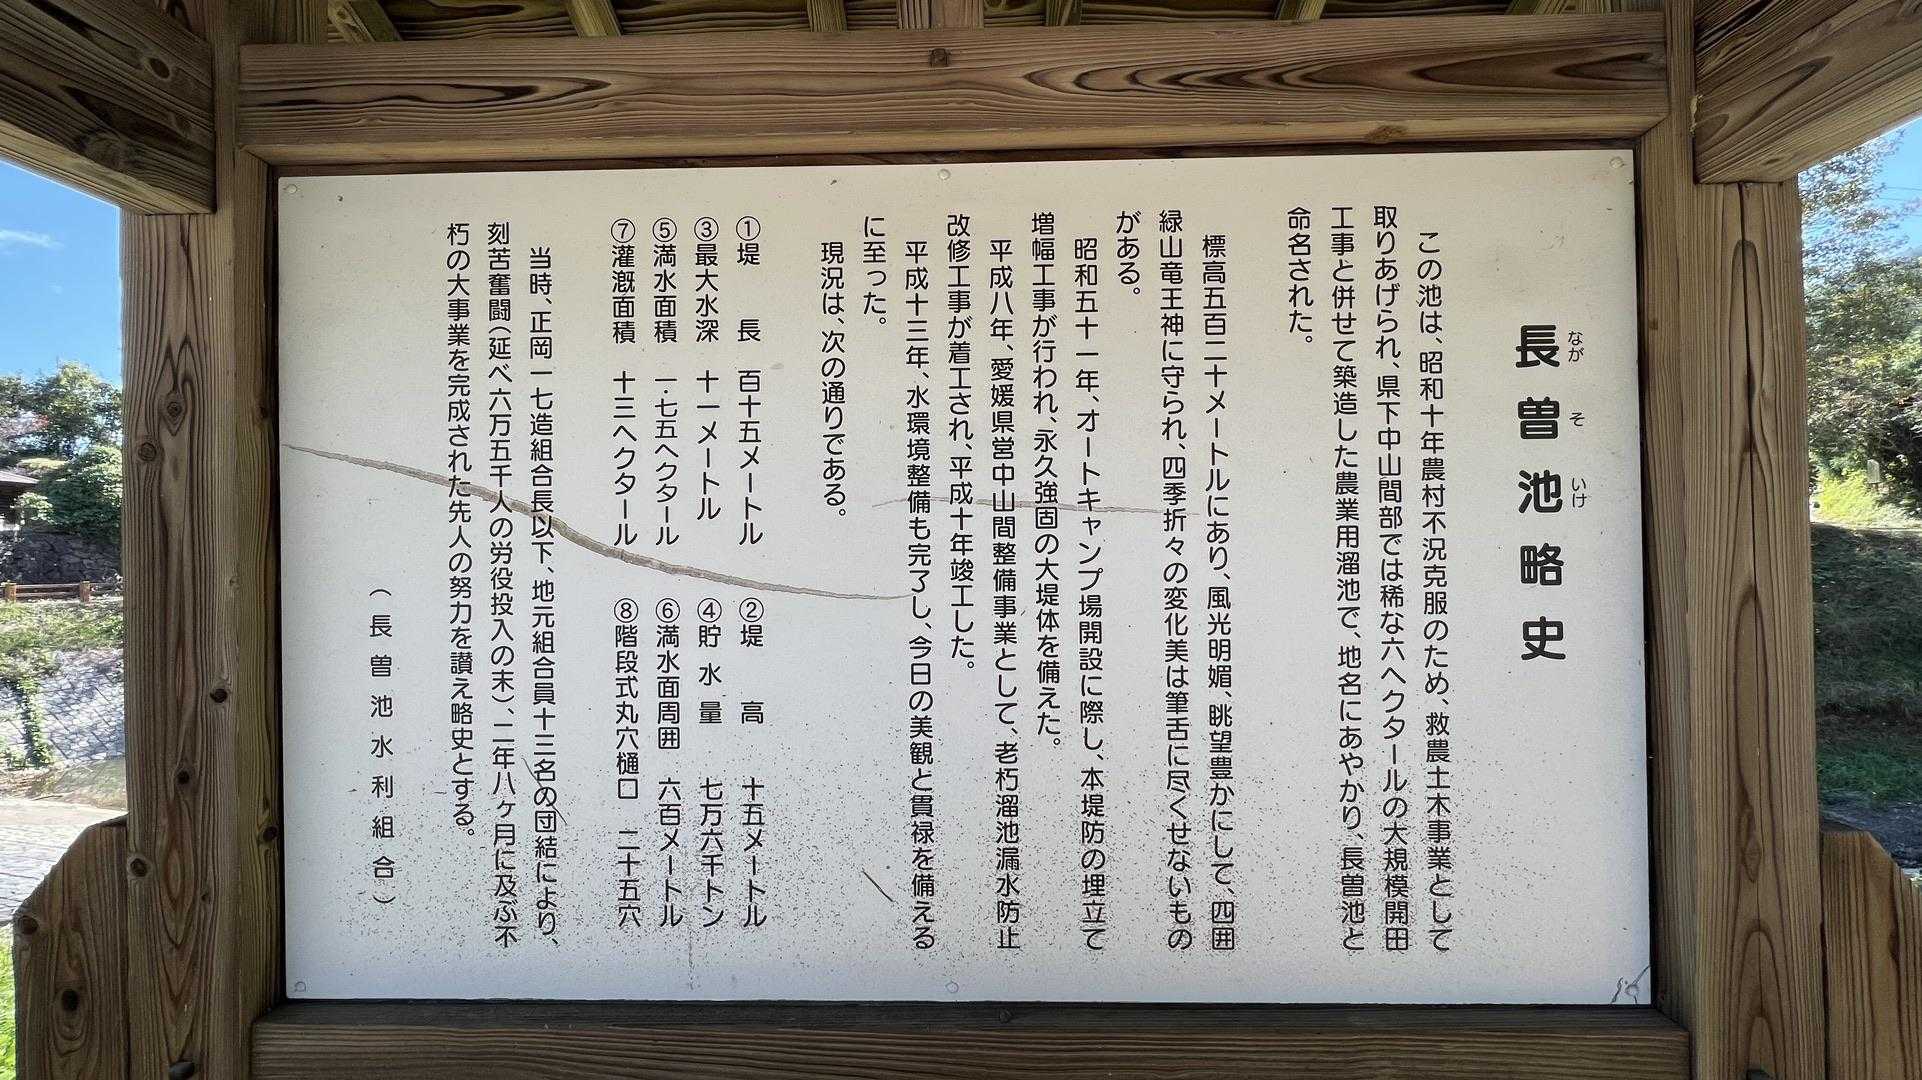 長曽池略史
なが そ いけ
この池は、昭和十年農村不況克服のため、救農土木事業として
取りあげられ、県下中山間部では稀な六ヘクタールの大規模開田
工事と併せて築造した農業用溜池で、地名にあやかり、長曽池と
命名された。
標高五百二十メートルにあり、風光明媚、眺望豊かにして、四囲
緑山竜王神に守られ、四季折々の変化美は筆舌に尽くせないもの
がある。
昭和五十一年、オートキャンプ場開設に際し、本堤防の埋立て
増幅工事が行われ、永久強固の大堤体を備えた。
平成八年、愛媛県営中山間整備事業として、老朽溜池漏水防止
改修工事が着工され、平成十年竣工した。
平成十三年、水環境整備も完了し、今日の美観と貫禄を備える
に至った。
現況は、次の通りである。
①堤長 百十五メートル ②堤高 十五メートル
③最大水深 十一メートル ④貯水量 七万六千トン
⑤満水面積 一・七五ヘクタール ⑥満水面周囲 六百メートル
⑦灌漑面積 十三ヘクタール ⑧階段式丸穴樋口 二十五穴
当時、正岡一七造組合長以下、地元組合員十三名の団結により、
刻苦奮闘(延べ六万五千人の労役投入の末)、二年八ヶ月に及ぶ不
朽の大事業を完成された先人の努力を讃え略史とする。
(長曽池水利組合)